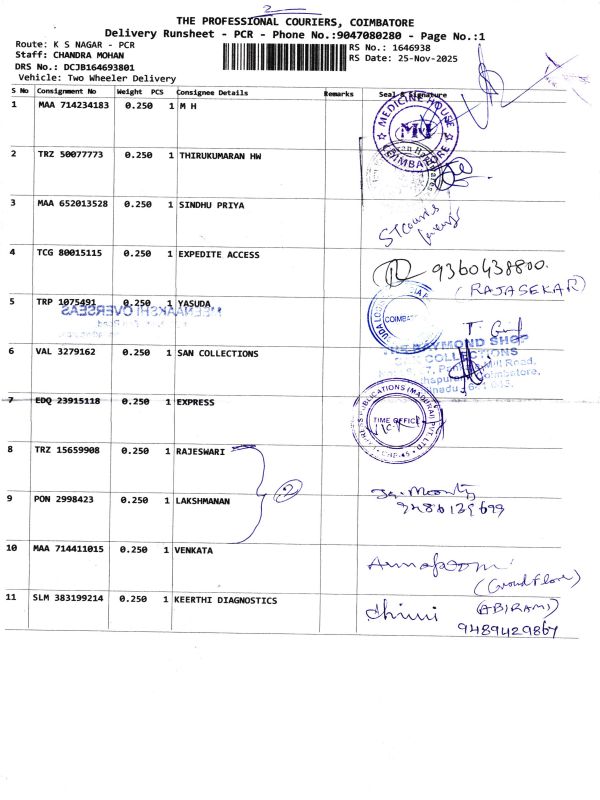 2
THE PROFESSIONAL COURIERS, COIMBATORE
Delivery Runsheet - PCR - Phone No.:9047080280 - Page No.:1
Route: K S NAGAR - PCR
RS No.: 1646938
Staff: CHANDRA MOHAN
RS Date: 25-Nov-2025
DRS No.: DCJB164693801
Vehicle: Two Wheeler Delivery
S No Consignment No Weight PCS Consignee Details Remarks Seal & Signature
1 MAA 714234183 0.250 1 M H
MEDICINE HOUSE
MH
COIMBATORE
2 TRZ 50077773 0.250 1 THIRUKUMARAN HW
3 MAA 652013528 0.250 1 SINDHU PRIYA
ST Couris
4 TCG 80015115 0.250 1 EXPEDITE ACCESS
9360438800.
(RAJASEKAR)
5 TRP 1075491 0.250 1 YASUDA
MEENAAKSHI OVERSEAS
COIMBAT
RAYMOND SHOP
COLLECTIONS
Mill Road,
Coimbatore,
6 VAL 3279162 0.250 1 SAN COLLECTIONS
7 EDQ 23915118 0.250 1 EXPRESS
PUBLICATIONS (MADURAI) PVT LTD
TIME OFFICE
8 TRZ 15659908 0.250 1 RAJESWARI
2
9 PON 2998423 0.250 1 LAKSHMANAN
9486129699
10 MAA 714411015 0.250 1 VENKATA
(Ground Floor)
11 SLM 383199214 0.250 1 KEERTHI DIAGNOSTICS
(ABIRAMI)
9489429867